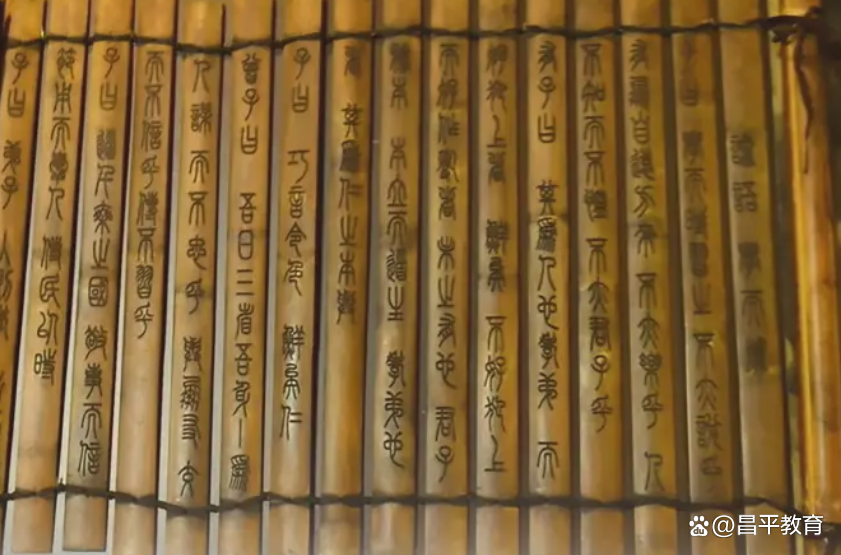 論語 學而
子曰 學而時習之 不亦說乎
有朋自遠方來 不亦樂乎 人
不知而不慍 不亦君子乎
有子曰 其爲人也孝弟 而
好犯上者 鮮矣 不好犯上
而好作亂者 未之有也 君子
務本 本立而道生 孝弟也
者 其爲仁之本與
子曰 巧言令色 鮮矣仁
曾子曰 吾日三省吾身 爲
人謀 而不忠乎 與朋友 交
而不信乎傳不習乎
子曰 道千乘之國 敬事而信
節用而愛人 使民以時
子曰 弟子 入則孝
du @昌平教育